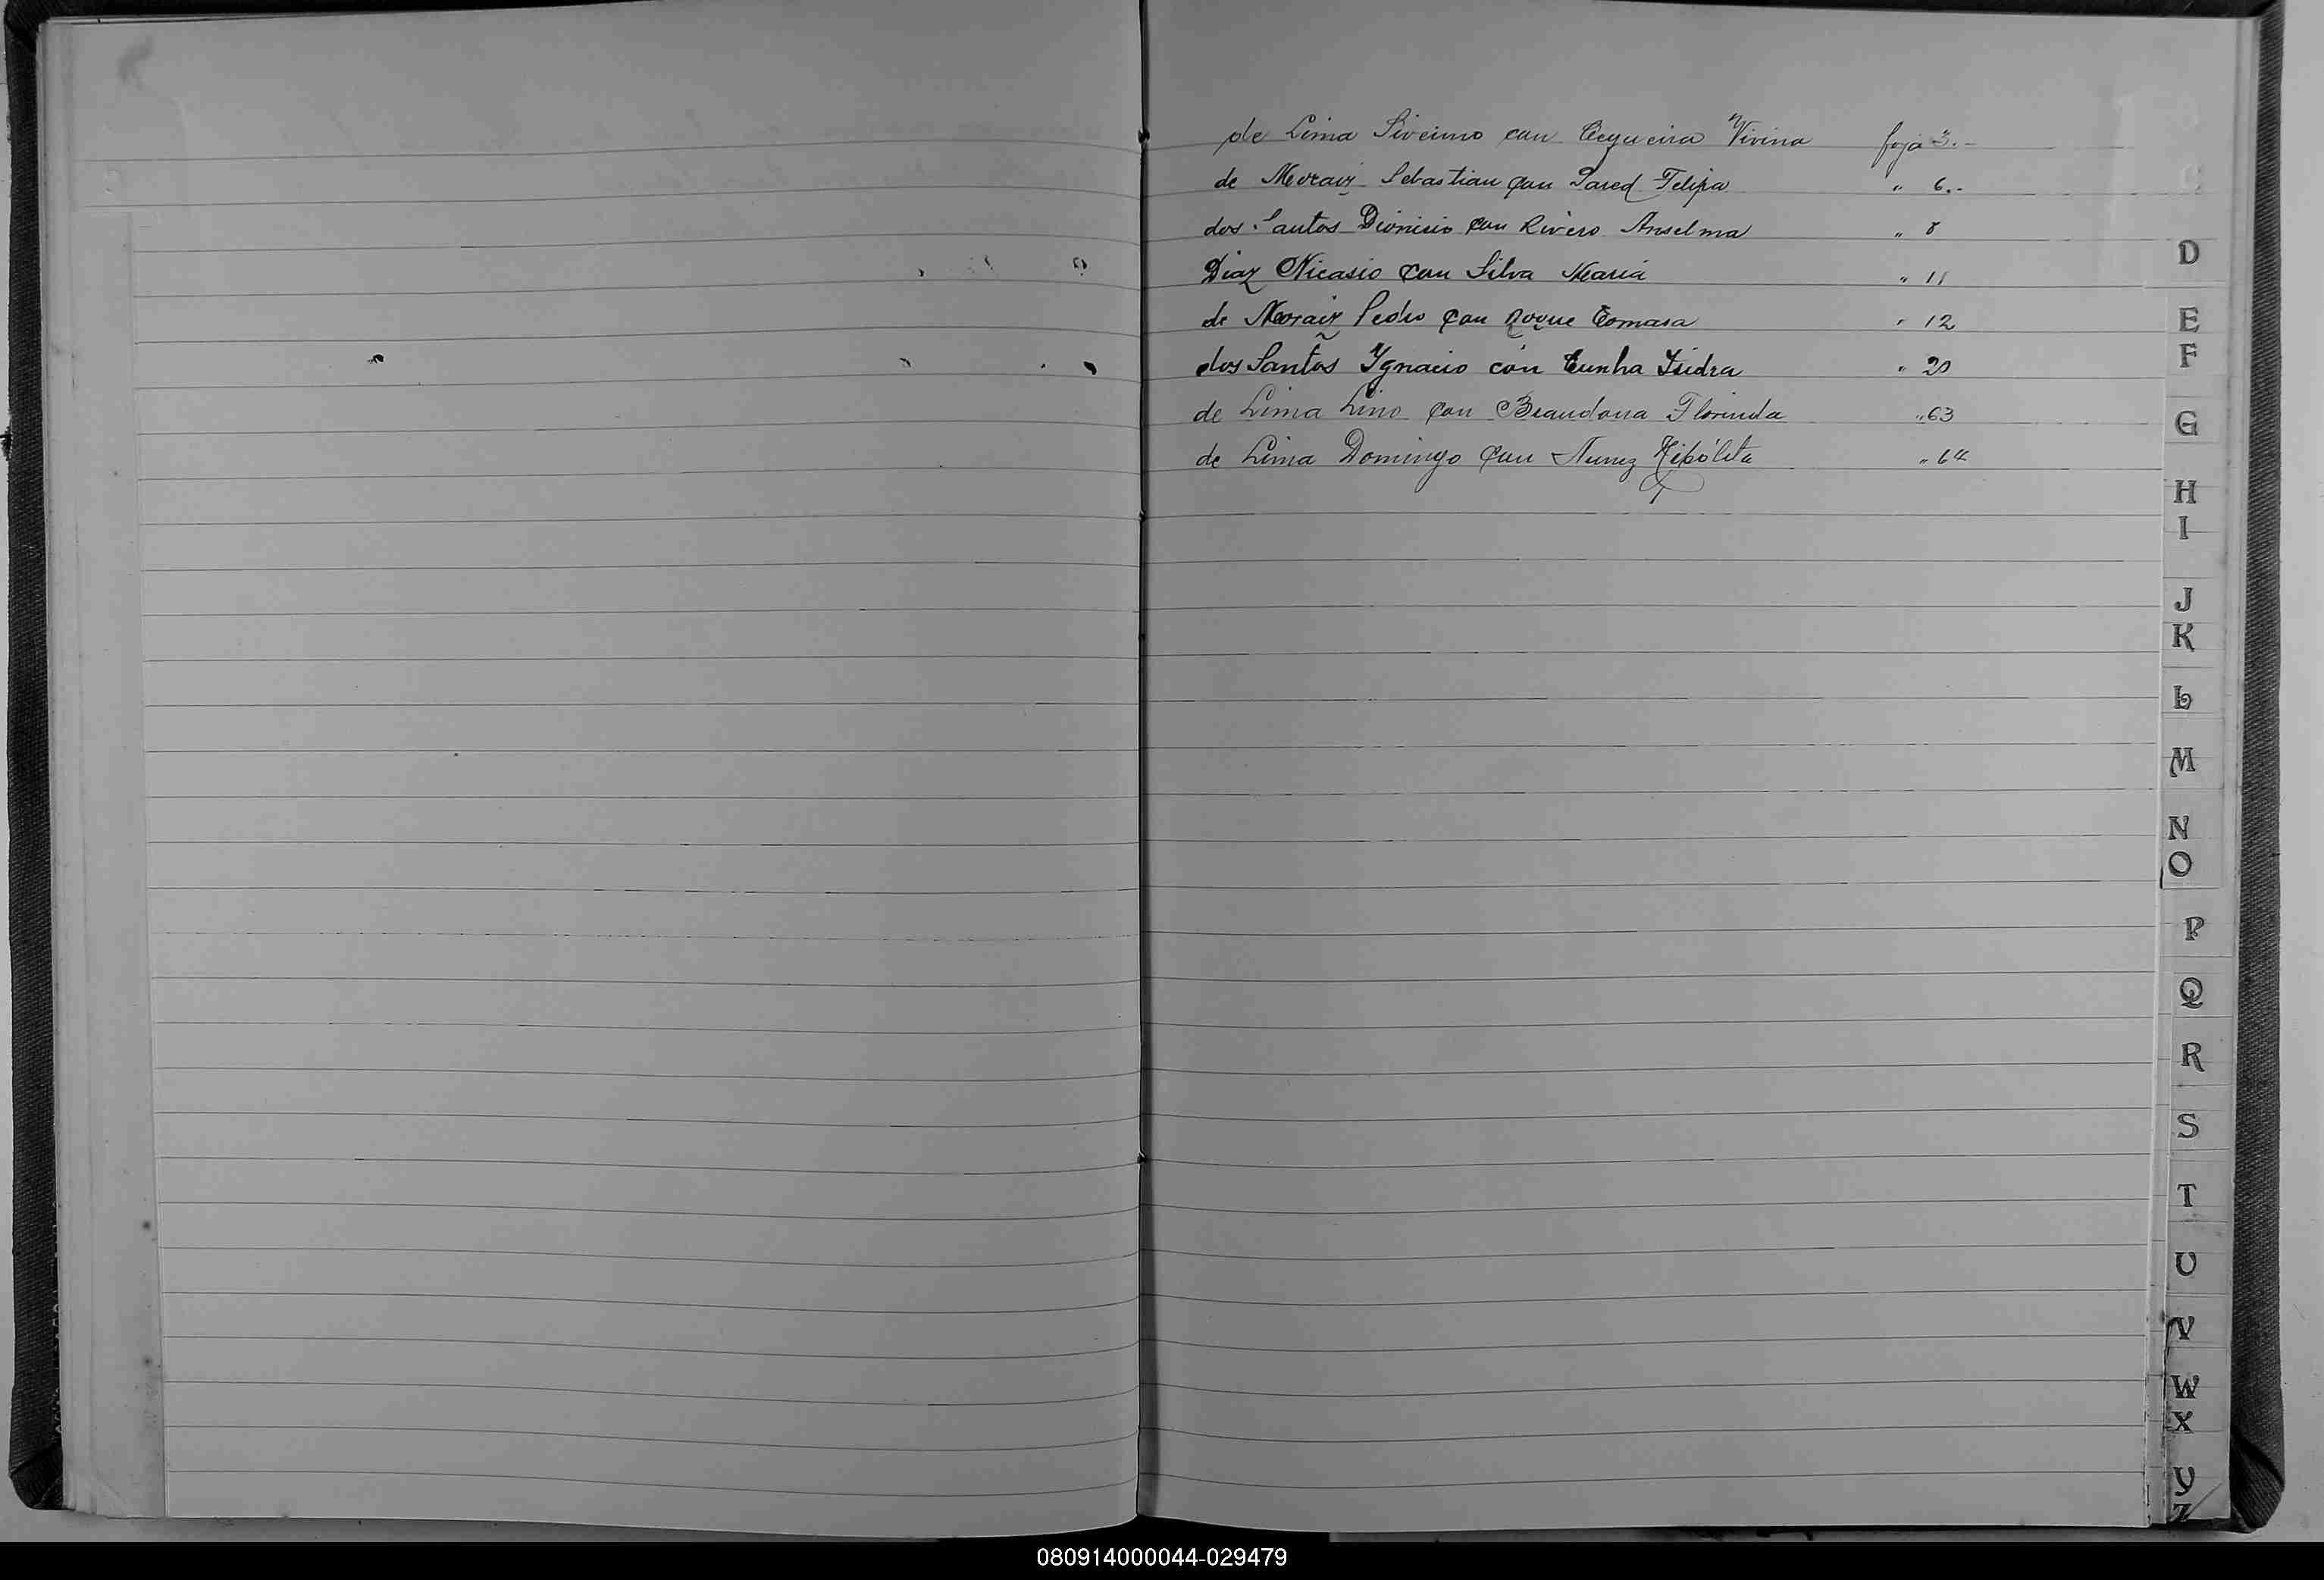 de Lima Siverino con Cerqueira Vivina foja 3.-
de Moraiz Sebastian con Pared Felipa " 6.-
dos Santos Dionisio con Rivero Anselma " 8
Diaz Nicasio con Silva Maria " 11
de Moraiz Pedro con Roque Tomasa " 12
dos Santos Ygnacio con Cunha Isidra " 20
de Lima Lino con Brandona Florinda " 63
de Lima Domingo con Nunez Hipólita " 64
D
E
F
G
H
I
J
K
L
M
N
O
P
Q
R
S
T
U
V
W
X
Y
Z
080914000044-029479